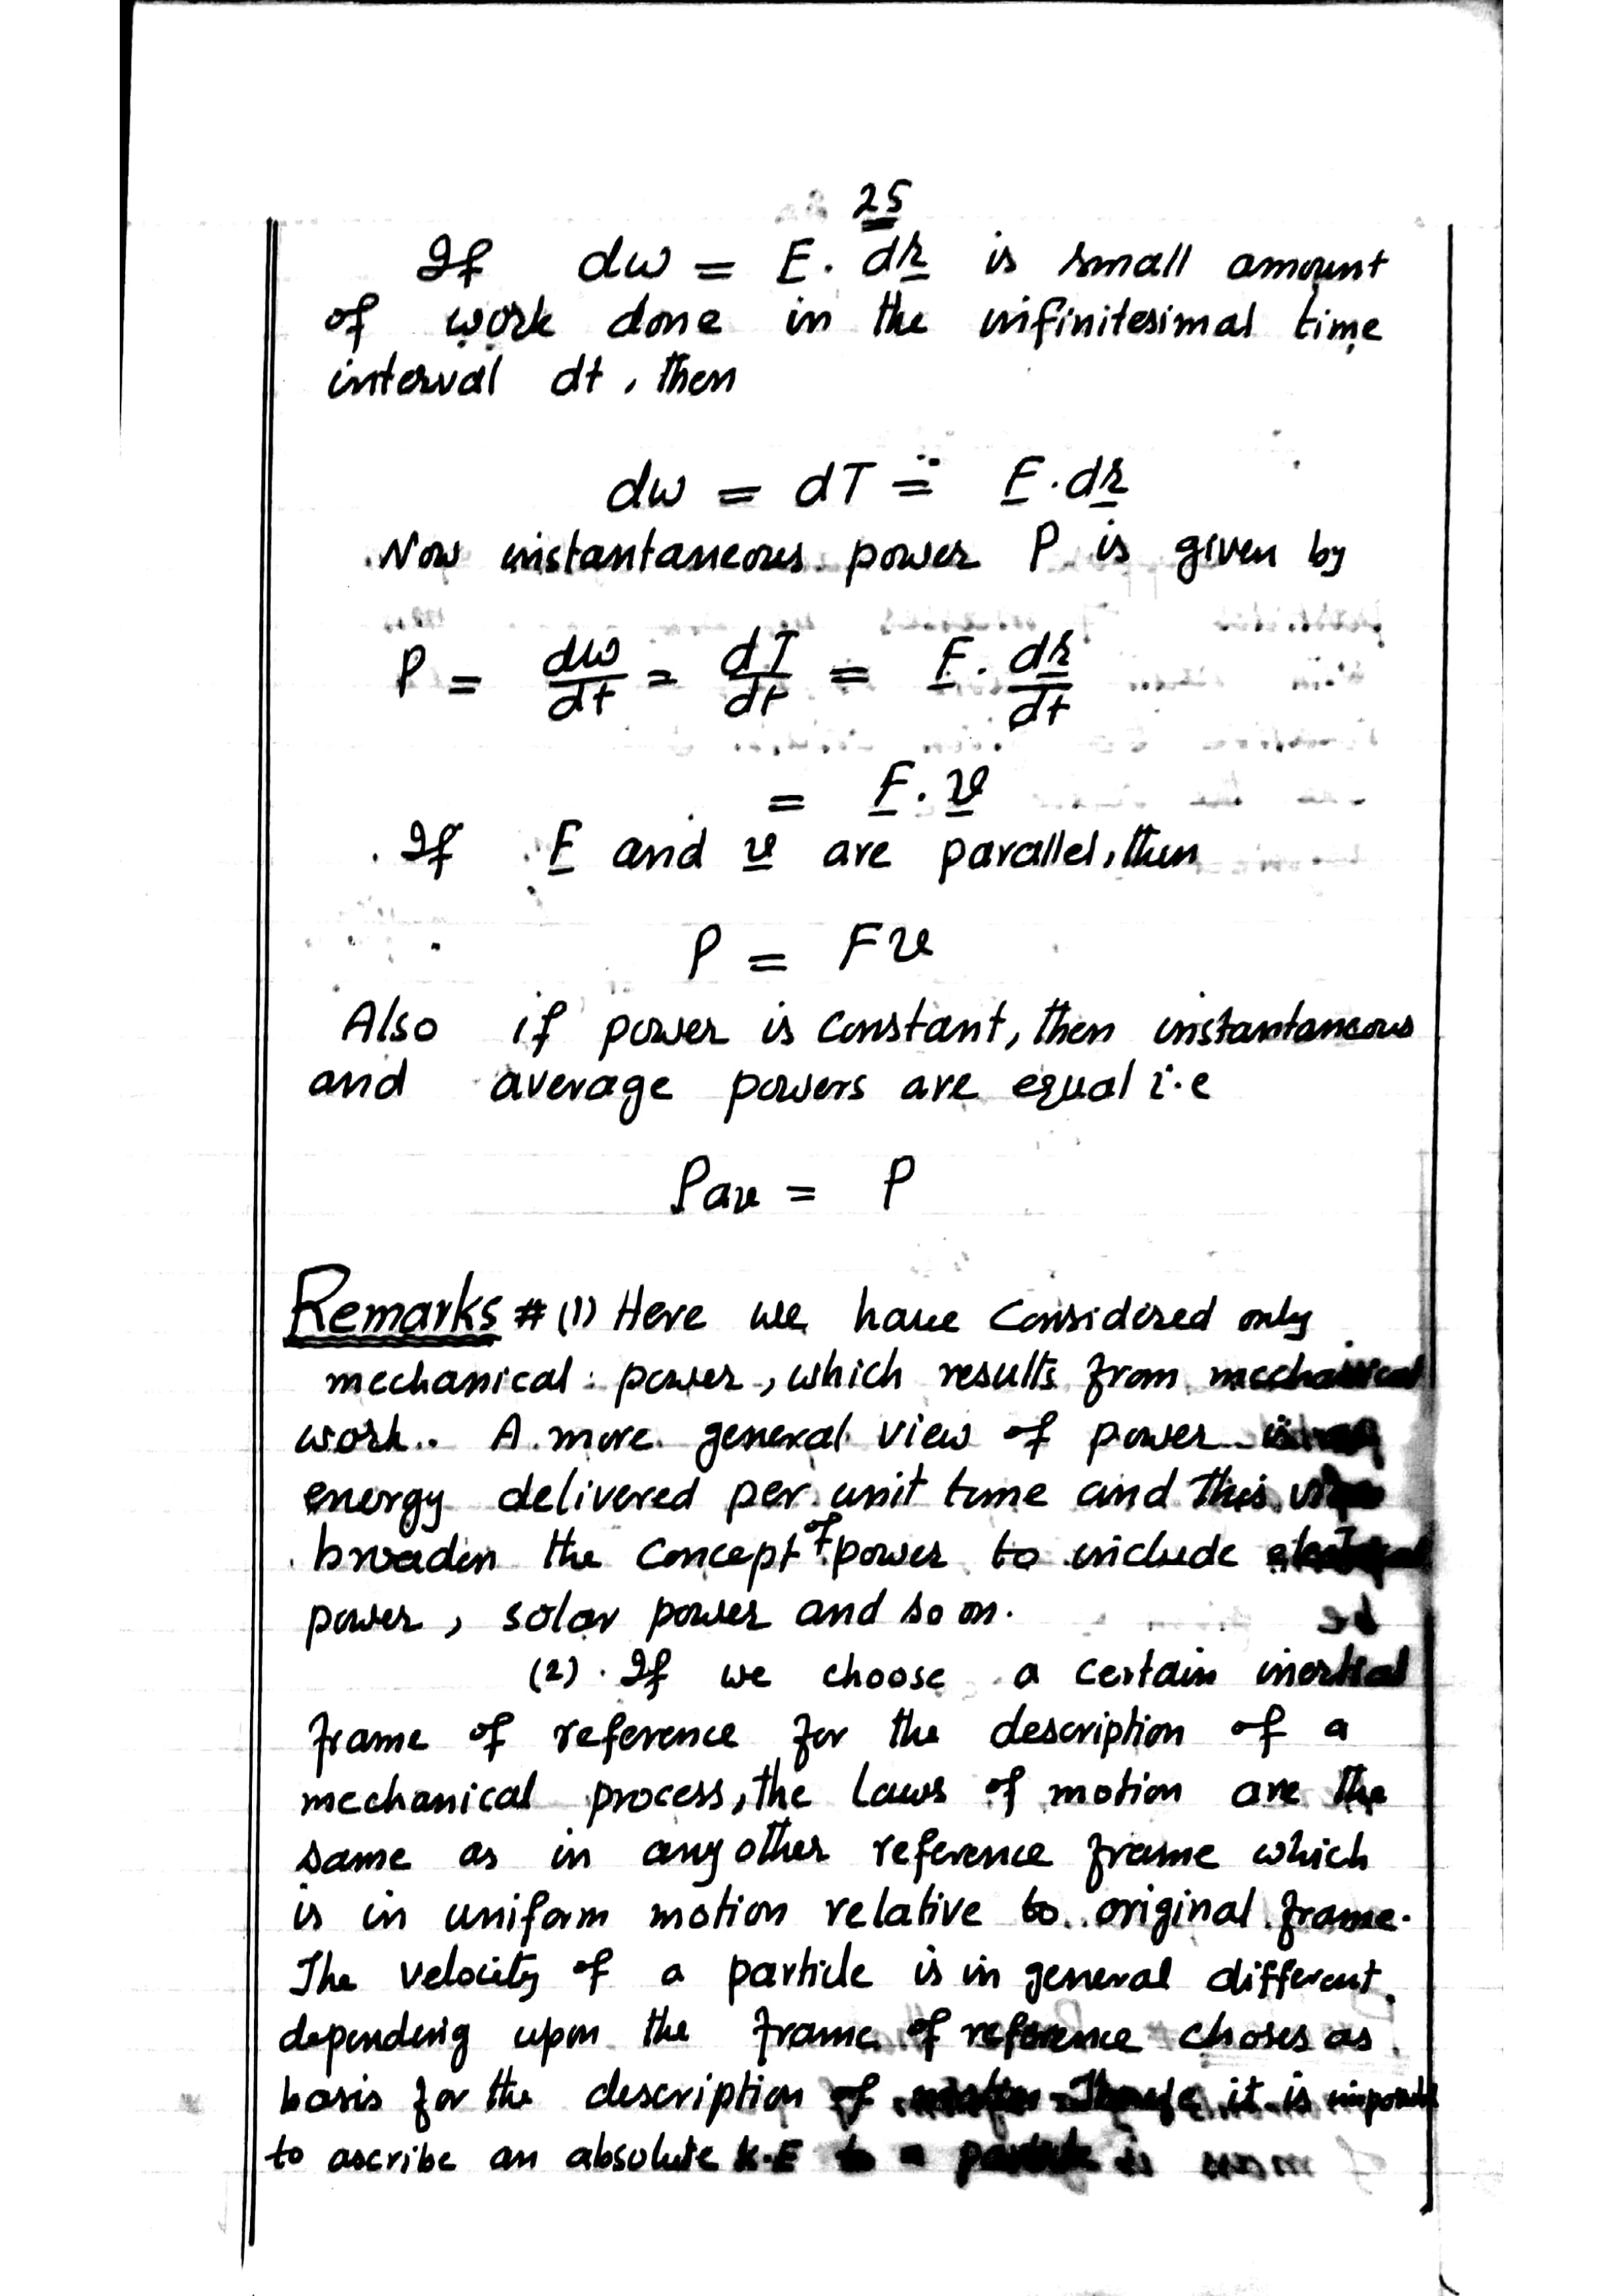 25
If dw = F. dr is small amount
of work done in the infinitesimal time
interval dt, then
dw = dT = F.dr
Now instantaneous power P is given by
P = dw/dt = dT/dt = F. dr/dt
= F. v
If F and v are parallel, then
P = Fv
Also if power is constant, then instantaneous
and average powers are equal i.e
Pav = P
Remarks # (1) Here we have Considered only
mechanical power, which results from mechanical
work. A more general view of power is
energy delivered per unit time and this
broaden the concept of power to include
power, solar power and so on.
(2) If we choose a certain inertial
frame of reference for the description of a
mechanical process, the laws of motion are the
same as in any other reference frame which
is in uniform motion relative to original frame.
The velocity of a particle is in general different
depending upon the frame of reference choses as
basis for the description of it is
to ascribe an absolute K.E to a particle